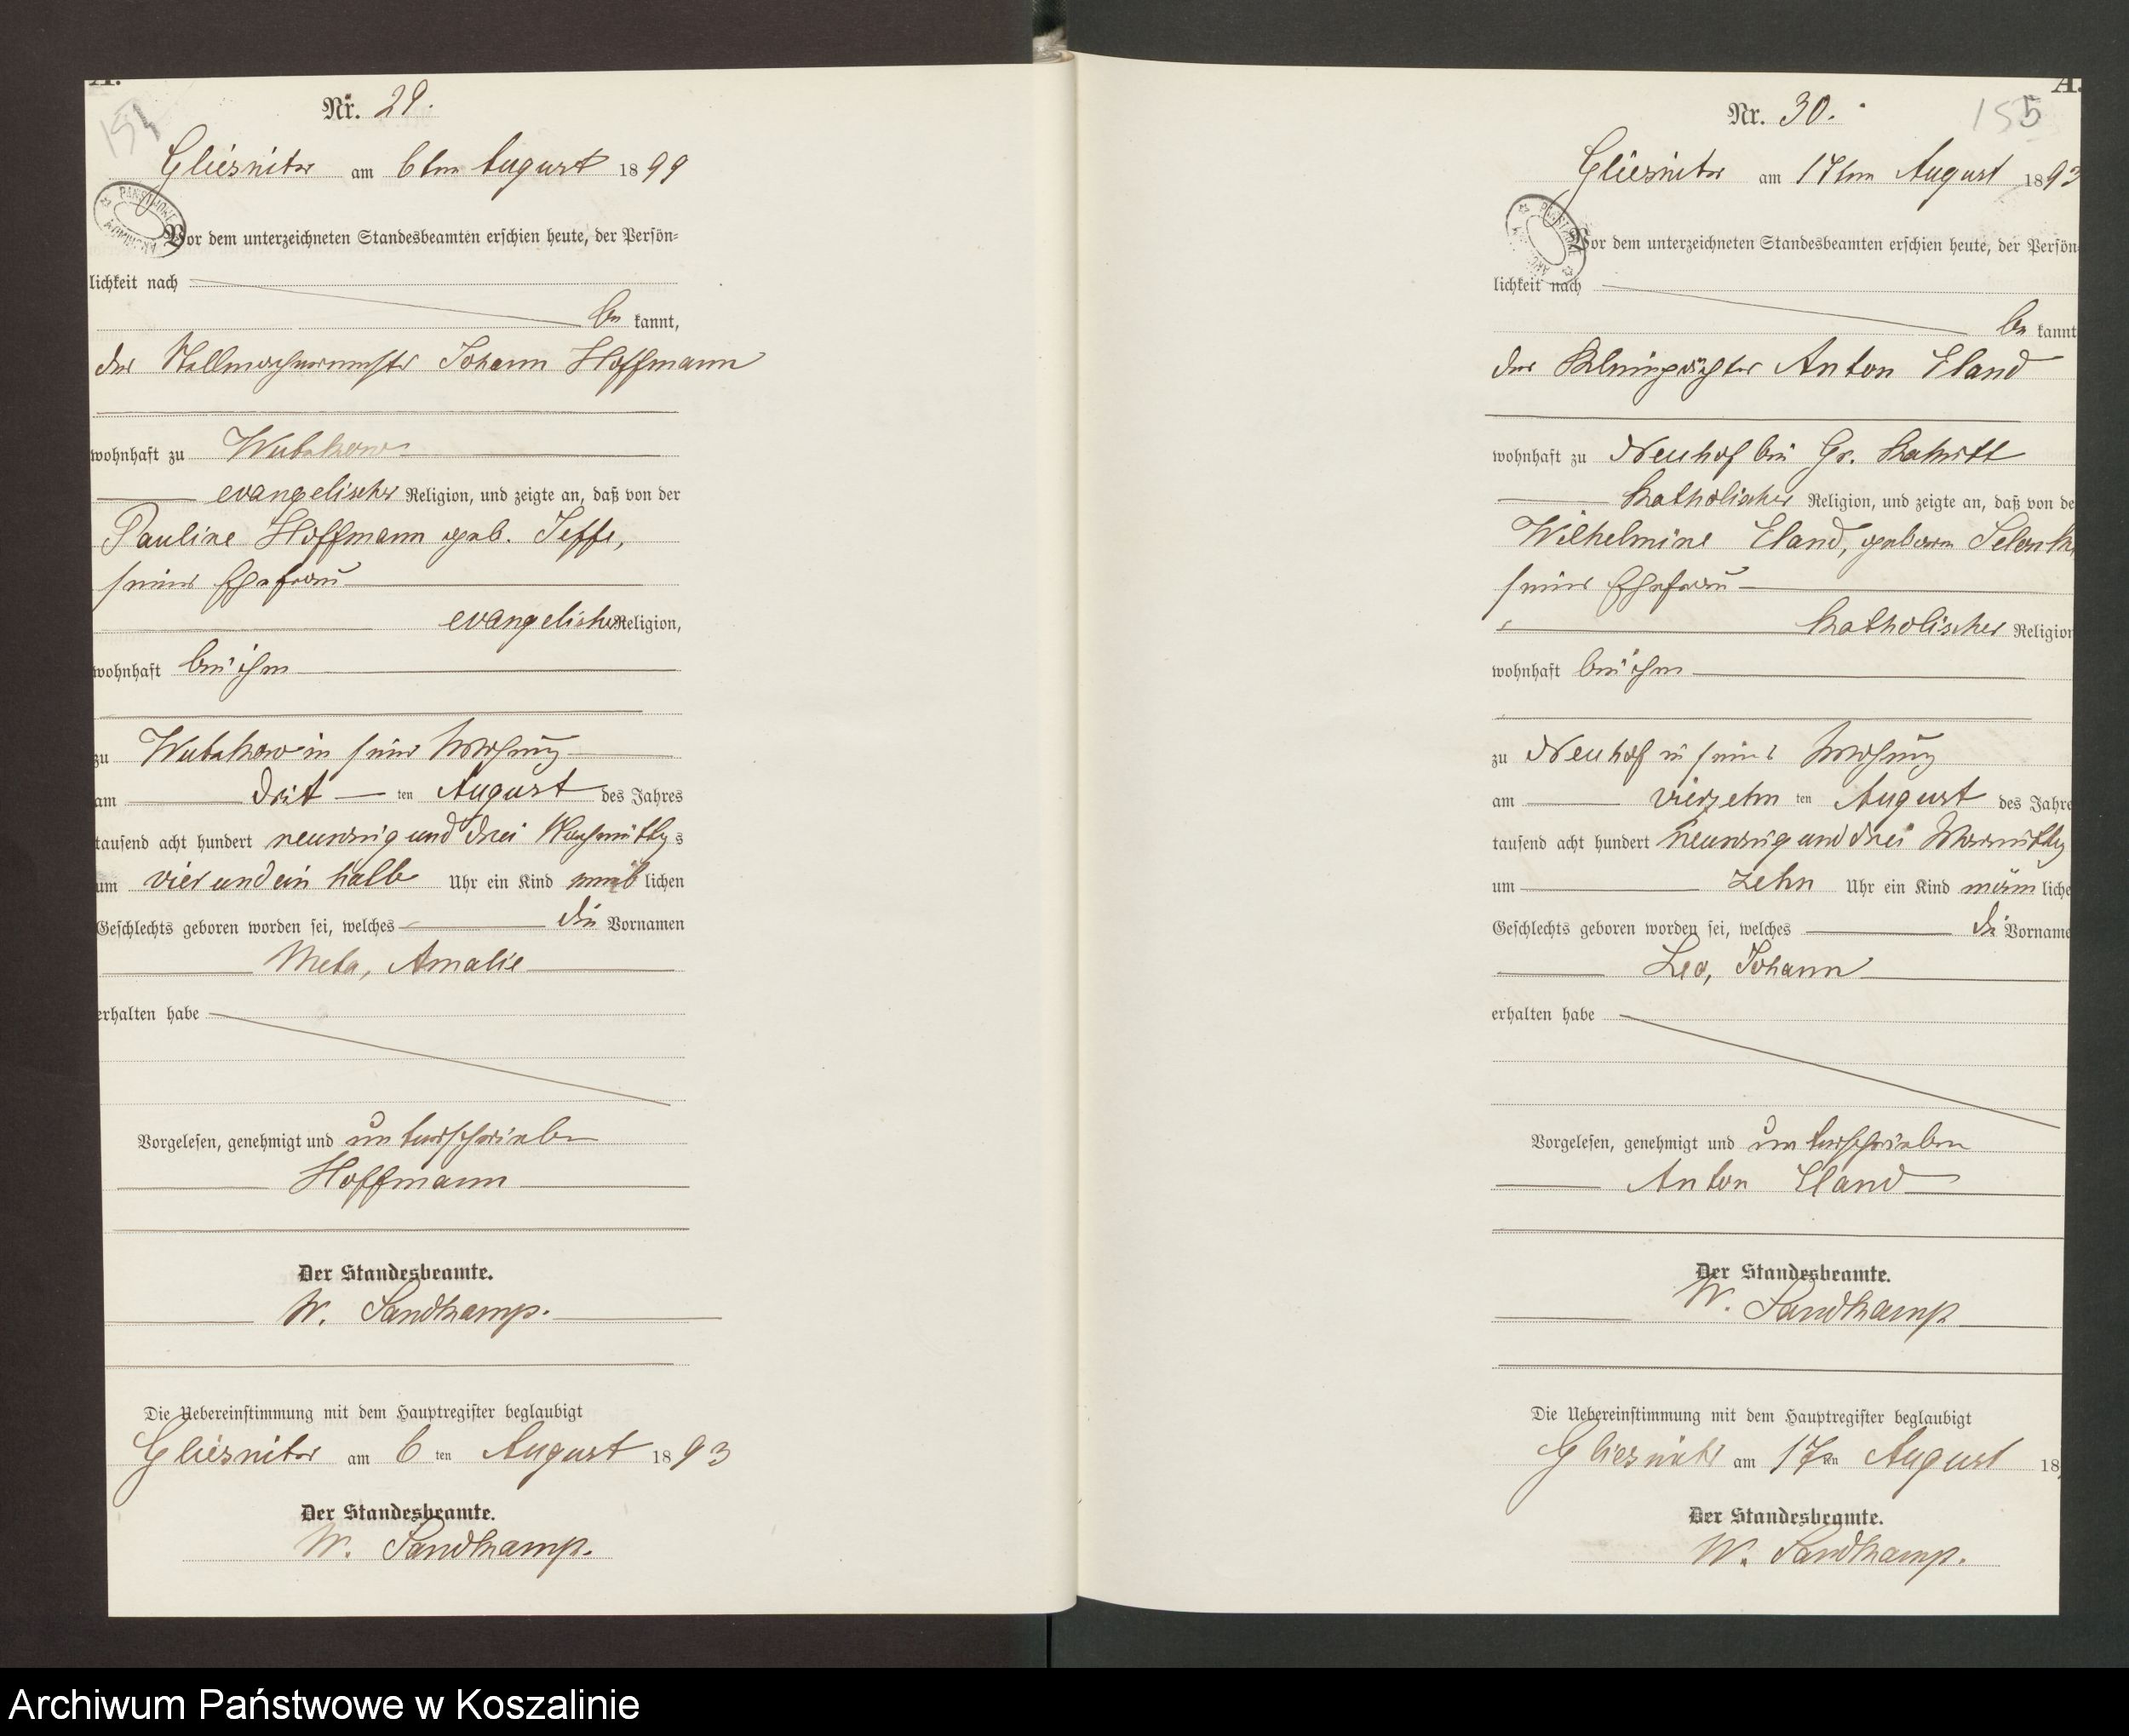 A.
154
Nr. 29.
Gliesnitz am 6ten August 1899
PAŃSTWOWE ARCHIWUM
Vor dem unterzeichneten Standesbeamten erschien heute, der Persön-
lichkeit nach
be kannt,
der Stellmachermeister Johann Hoffmann
wohnhaft zu Wutzkow
evangelischer Religion, und zeigte an, daß von der
Pauline Hoffmann geb. Jeffe,
seiner Ehefrau
evangelischer Religion,
wohnhaft bei ihm
zu Wutzkow in seiner Wohnung
am drit ten August des Jahres
tausend acht hundert neunzig und drei Nachmittags
um vier und ein halb Uhr ein Kind weib lichen
Geschlechts geboren worden sei, welches die Vornamen
Meta, Amalie
erhalten habe
Vorgelesen, genehmigt und unterschrieben
Hoffmann
Der Standesbeamte.
W. Sandkamp.
Die Uebereinstimmung mit dem Hauptregister beglaubigt
Gliesnitz am 6 ten August 1893
Der Standesbeamte.
W. Sandkamp.
A.
155
Nr. 30.
Gliesnitz am 17ten August 1893
PAŃSTWOWE ARCHIWUM
Vor dem unterzeichneten Standesbeamten erschien heute, der Persön
lichkeit nach
be kannt
der Anton Eland
wohnhaft zu Neuhof bei Gr.
katholischer Religion, und zeigte an, daß von de
Wilhelmine Eland, geboren
seiner Ehefrau
katholischer Religion
wohnhaft bei ihm
zu Neuhof in seiner Wohnung
am vierzehn ten August des Jahre
tausend acht hundert neunzig und drei Vormittag
um zehn Uhr ein Kind männ liche
Geschlechts geboren worden sei, welches die Vorname
Leo, Johann
erhalten habe
Vorgelesen, genehmigt und unterschrieben
Anton Eland
Der Standesbeamte.
W. Sandkamp
Die Uebereinstimmung mit dem Hauptregister beglaubigt
Gliesnitz am 17ten August 18
Der Standesbeamte.
W. Sandkamp.
Archiwum Państwowe w Koszalinie